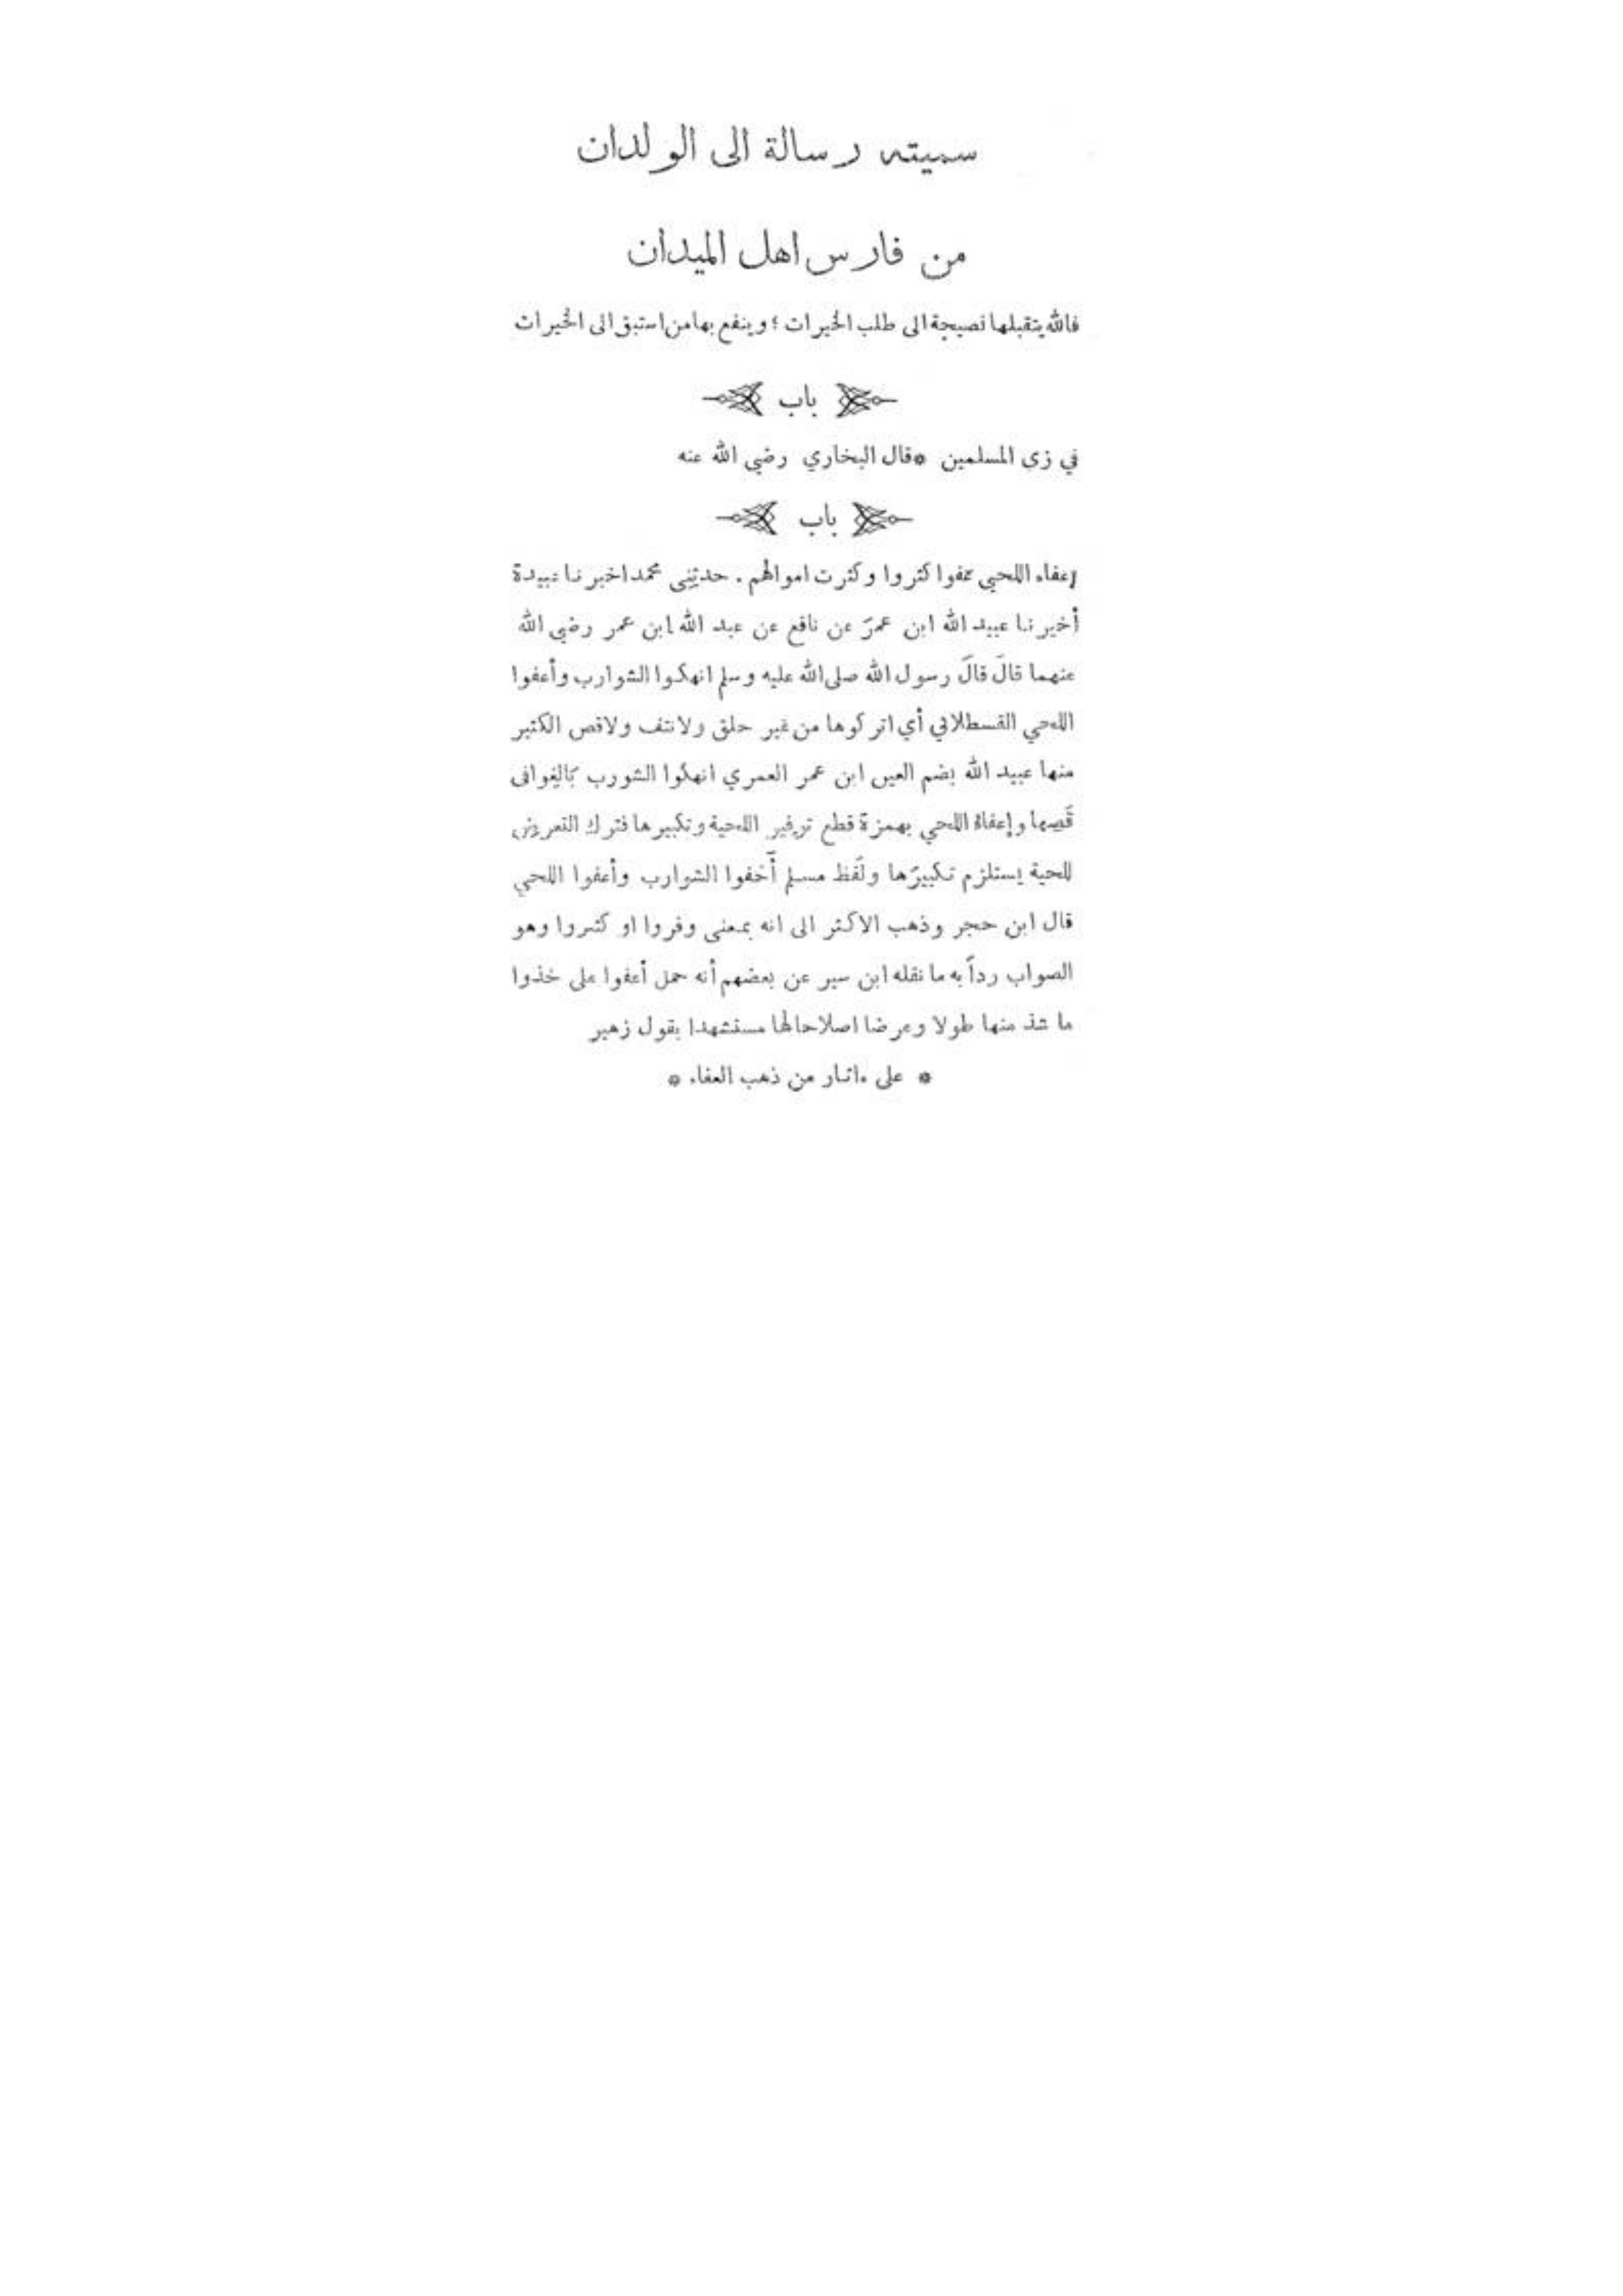 سميته رسالة الى الولدان
من فارس اهل الميدان
فالله يتقبلها نصيحة الى طلب الخيرات ؛ وينفع بها من استبق الى الخيرات
باب
في زى المسلمين *قال البخاري رضي الله عنه
باب
إعفاء اللحي عفوا كثروا وكثرت اموالهم . حدثني محمد اخبرنا عبيدة
أخبرنا عبيد الله ابن عمرَ عن نافع عن عبد الله ابن عمر رضي الله
عنهما قالَ قالَ رسول الله صلى الله عليه وسلم انهكوا الشوارب وأعفوا
اللحي القسطلاني أي اتركوها من غير حلق ولا نتف ولا قص الكثير
منها عبيد الله بضم العين ابن عمر العمري انهكوا الشورب
قَصها وإعفاة اللحي بهمزة قطع توفير اللحية وتكبيرها فترك التعريض
للحية يستلزم تكبيرَها ولَفظ مسلم أَخفوا الشوارب وأعفوا اللحي
قال ابن حجر وذهب الاكثر الى انه بمعنى وفروا او كثروا وهو
الصواب رداً به ما نقله ابن سير عن بعضهم أنه حمل أعفوا على خذوا
ما شذ منها طولا وعرضا اصلاحا لها مستشهدا بقول زهير
* على ءاثار من ذهب العفاء *